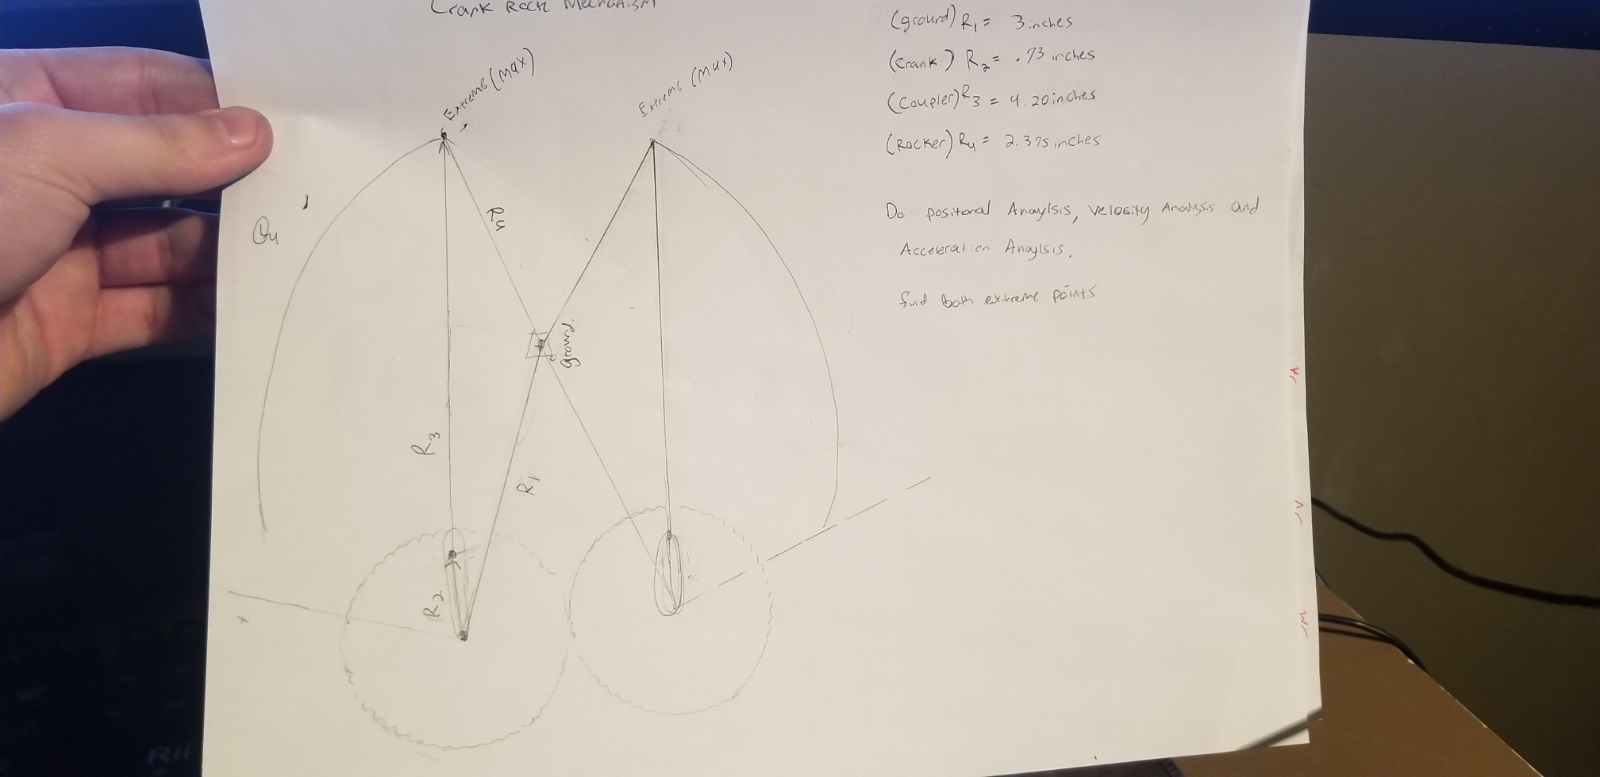 Crank Rock Mechanism
(ground) R1 = 3 inches
(Crank) R2 = .73 inches
(Coupler) R3 = 4.20 inches
(Rocker) R4 = 2.375 inches
Do positional Anaylsis, Velocity Analysis and
Acceleration Anaylsis.
find both extreme points
Extreme (max)
Extreme (max)
θ4
R4
ground
R3
R1
R2
x
RII